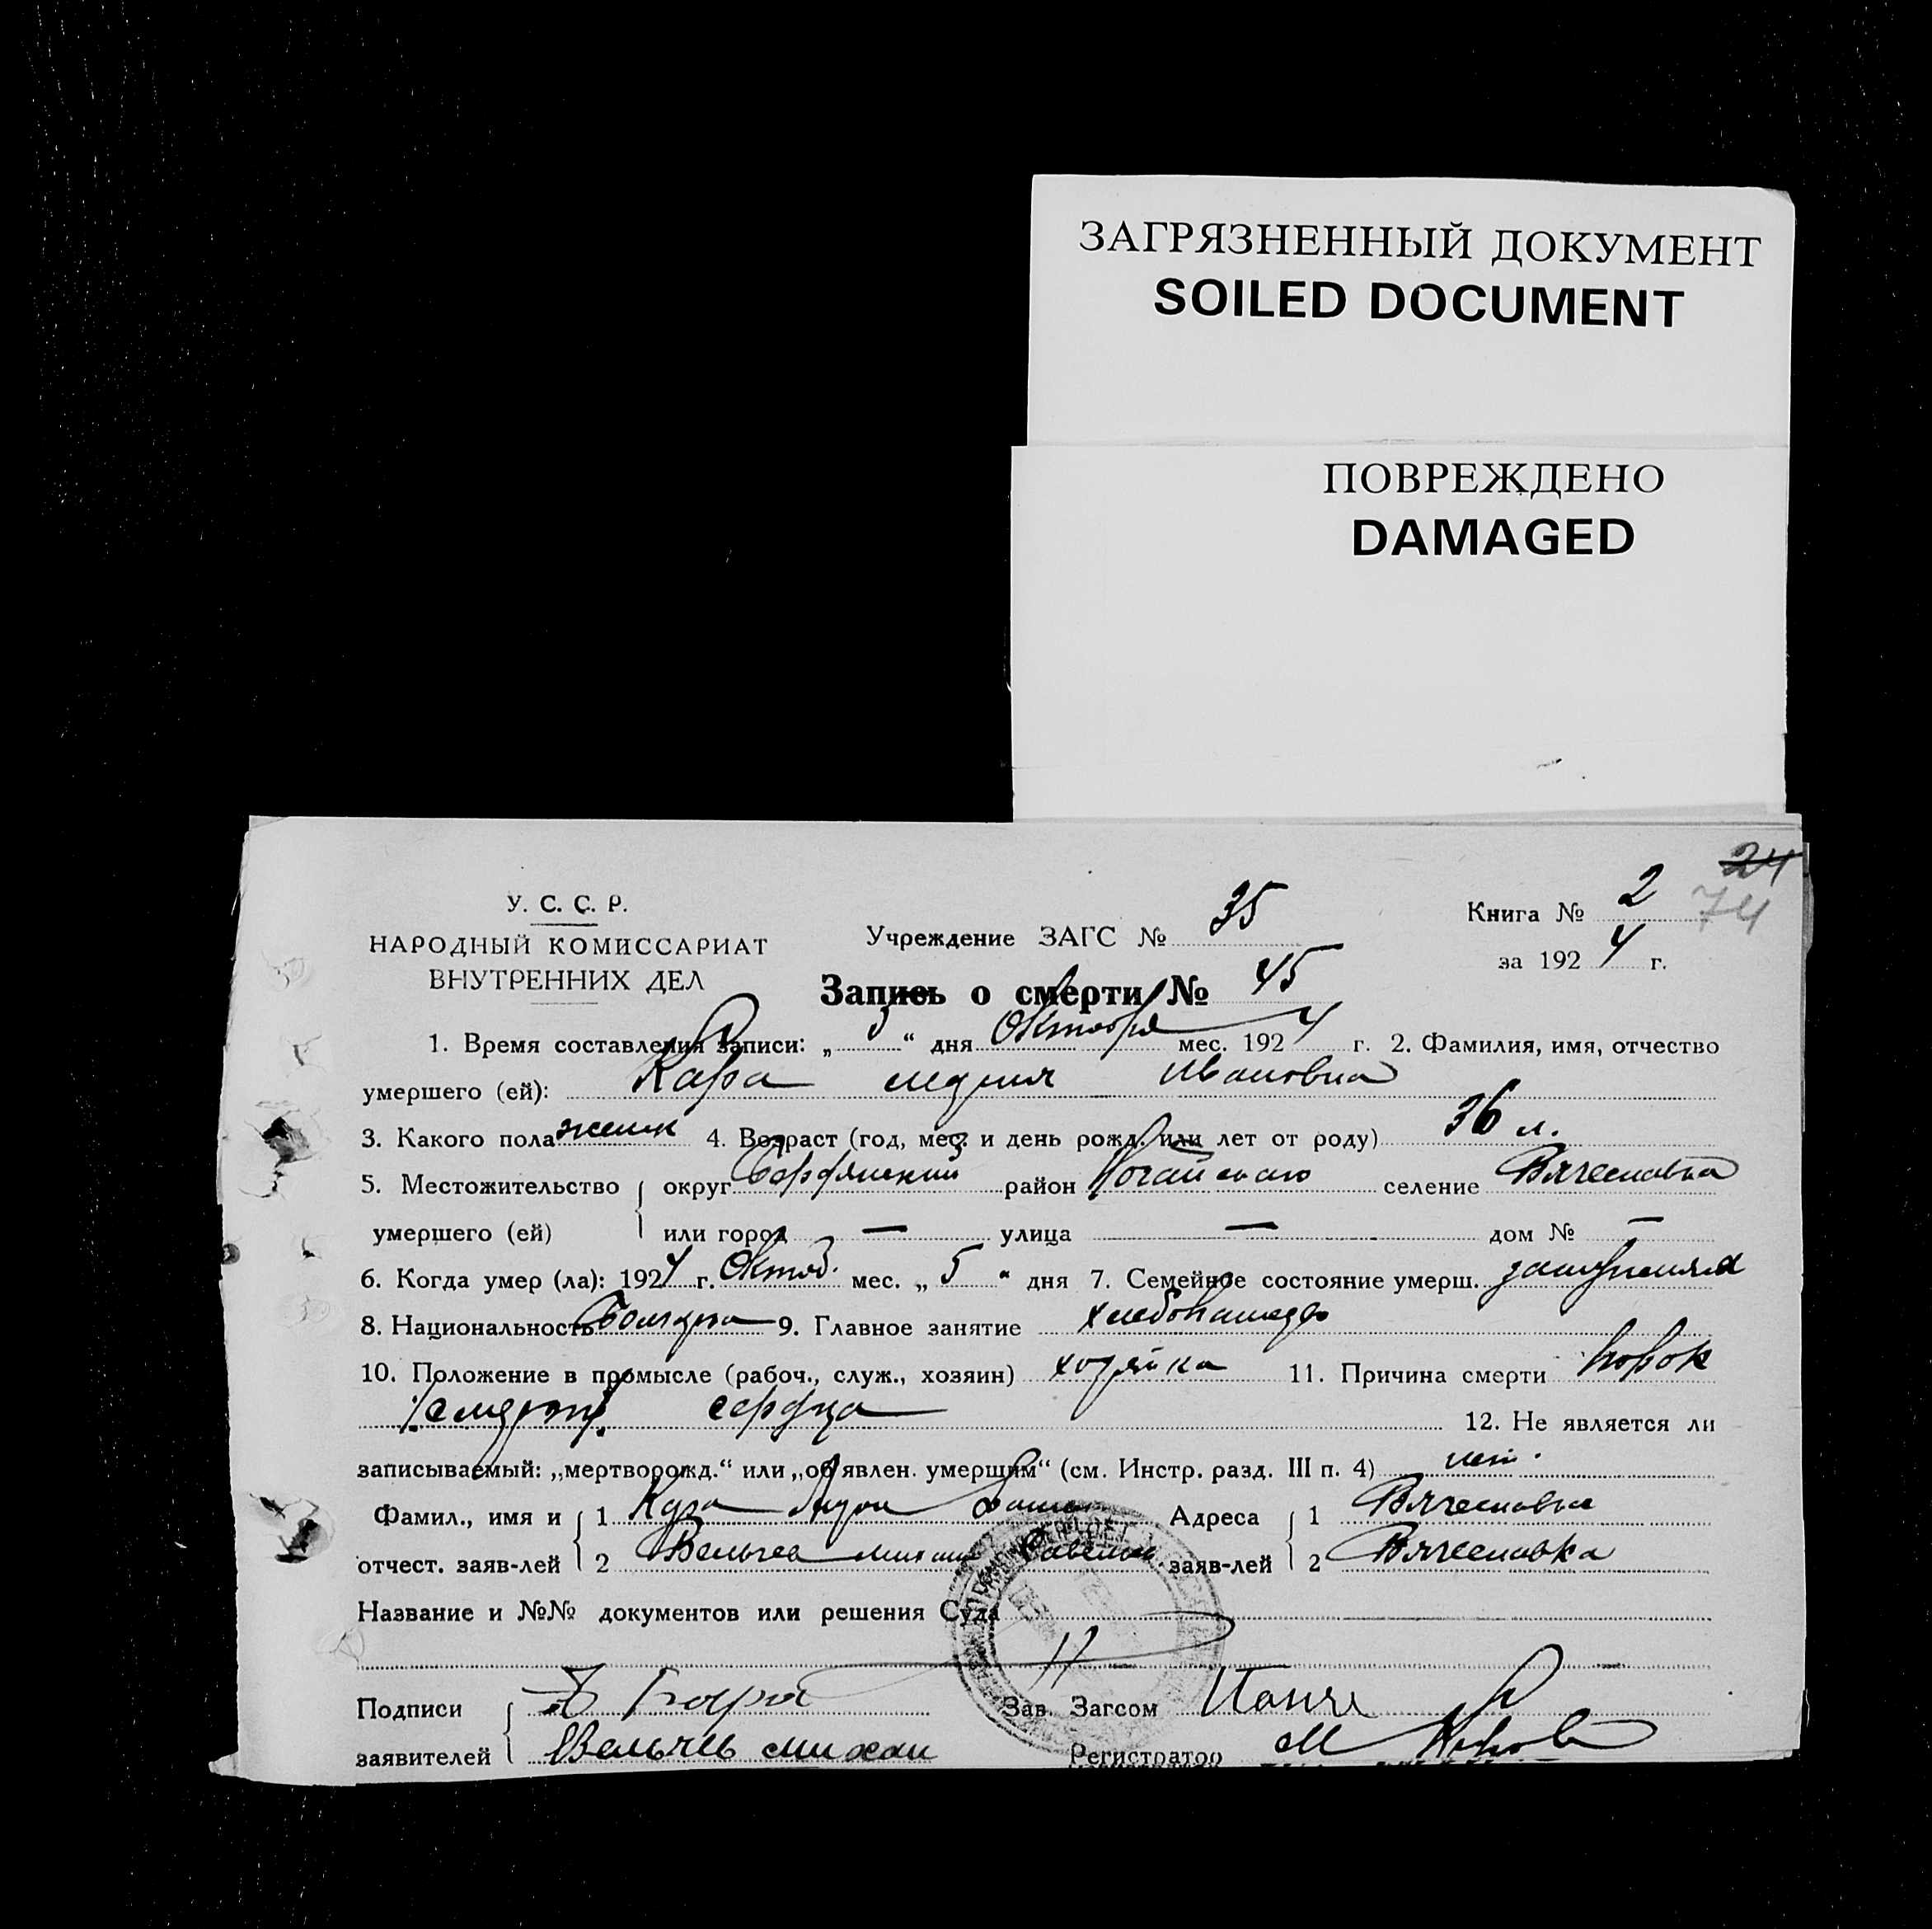 ЗАГРЯЗНЕННЫЙ ДОКУМЕНТ
SOILED DOCUMENT
ПОВРЕЖДЕНО
DAMAGED
24
74
У. С. С. Р.
НАРОДНЫЙ КОМИССАРИАТ
ВНУТРЕННИХ ДЕЛ
Учреждение ЗАГС № 35
Книга № 2
за 1924 г.
Запись о смерти № 45
1. Время составления записи: „5“ дня Октября мес. 1924 г. 2. Фамилия, имя, отчество
умершего (ей): Кара Ивановна
3. Какого пола женск 4. Возраст (год, мес. и день рожд. или лет от роду) 36 л.
5. Местожительство округ Бердянский район Ногайского селение Вячеславка
умершего (ей) или город — улица — дом № —
6. Когда умер (ла): 1924 г. Октяб. мес. „5“ дня 7. Семейное состояние умерш. замужняя
8. Национальность Болгарка 9. Главное занятие хлебопашедо
10. Положение в промысле (рабоч., служ., хозяин) хозяйка 11. Причина смерти порок
сердца 12. Не является ли
записываемый: „мертворожд.“ или „об'явлен. умершим“ (см. Инстр. разд. III п. 4) нет.
Фамил., имя и 1 Кара Адреса 1 Вячеславка
отчест. заяв-лей 2 Вельчев михаил Савельев. заяв-лей 2 Вячеславка
Название и №№ документов или решения Суда
Подписи Кара Зав. Загсом
заявителей Вельчев михаи Регистратор М